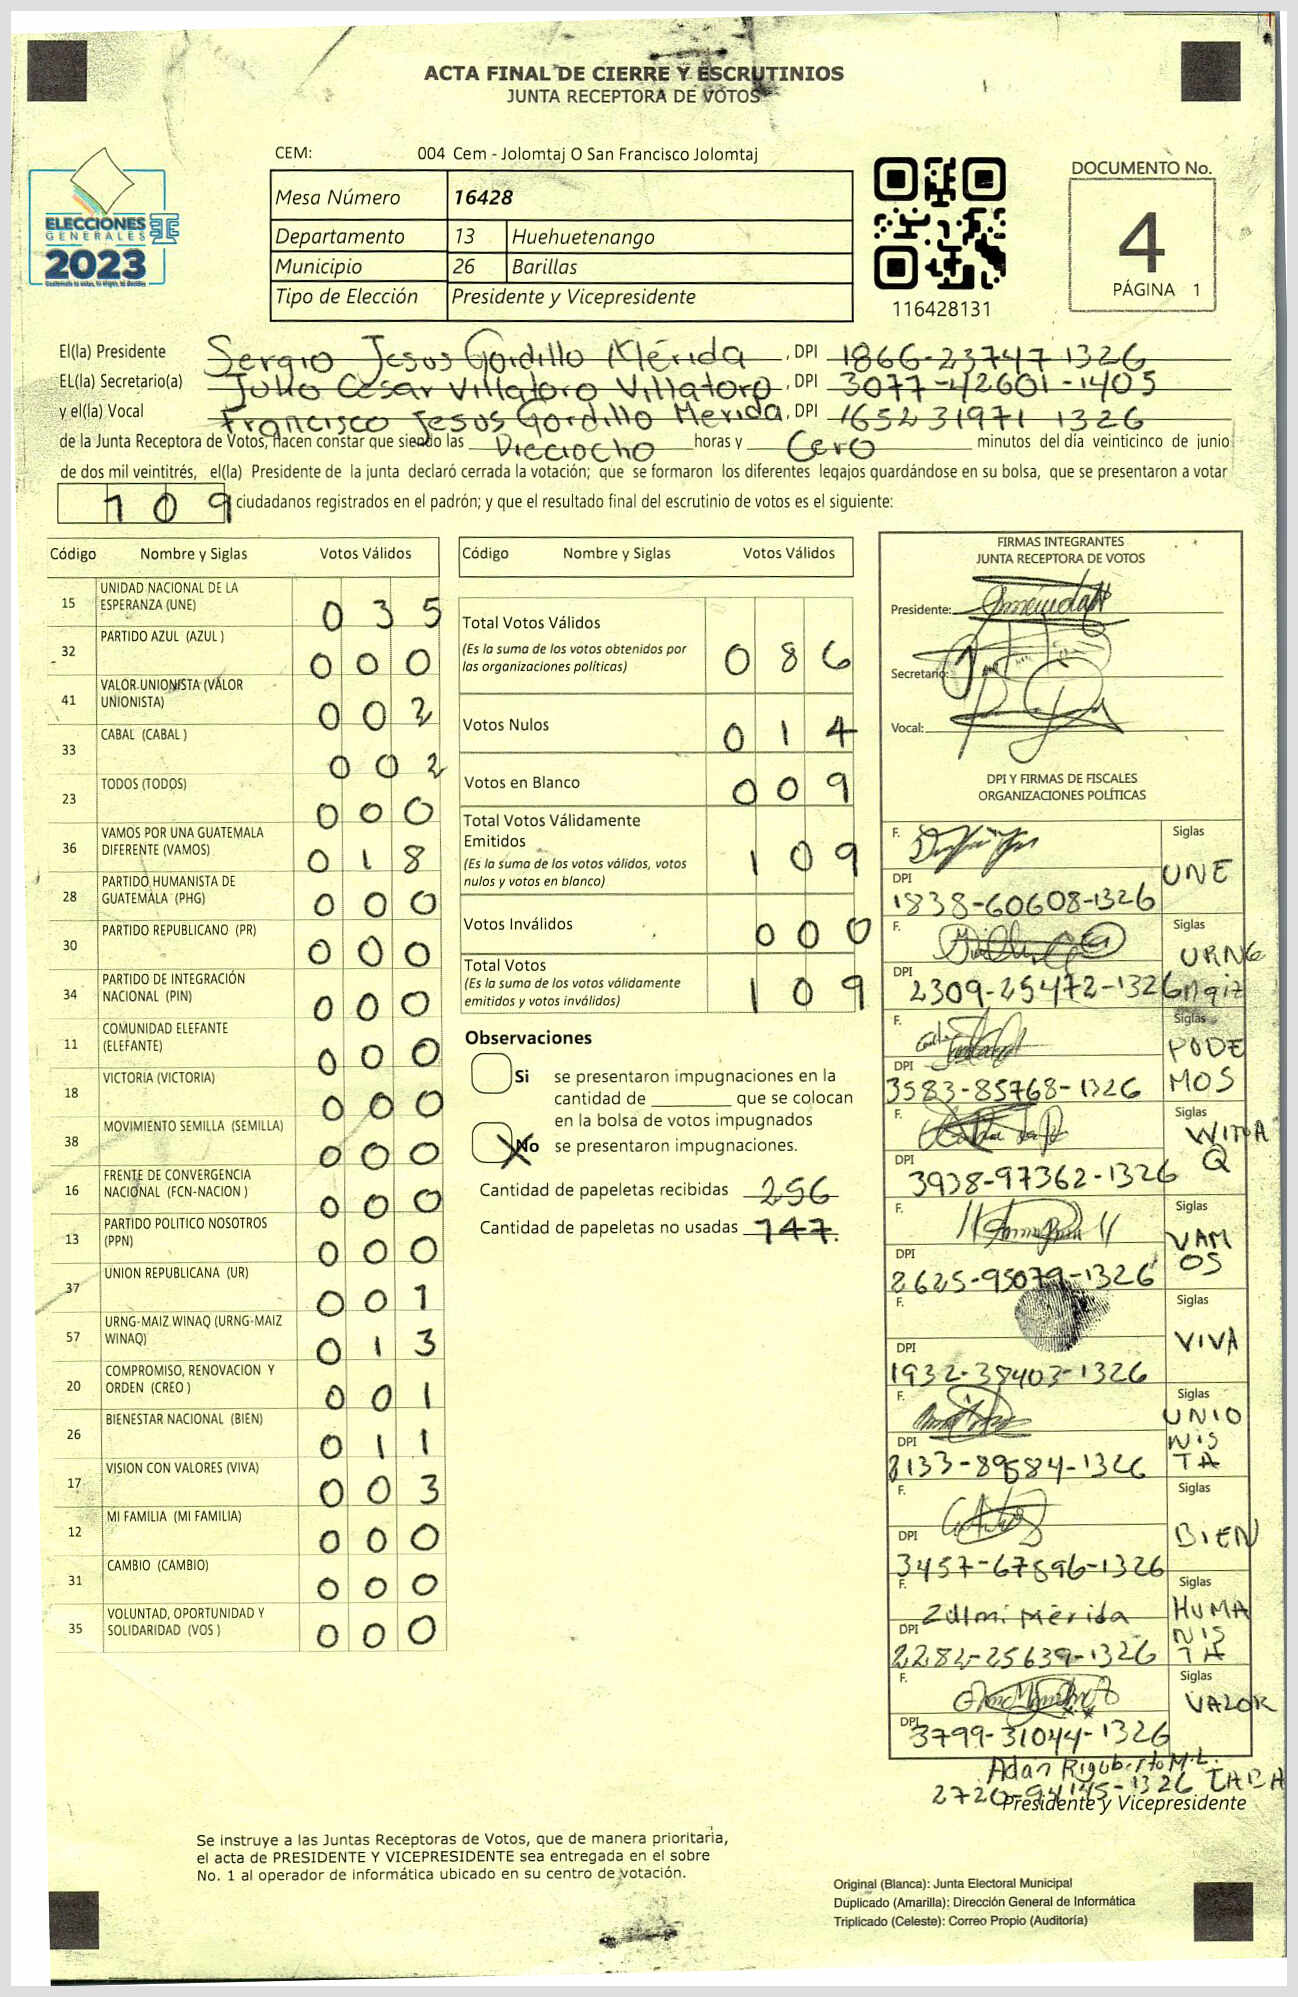 ACTA FINAL DE CIERRE Y ESCRUTINIOS
JUNTA RECEPTORA DE VOTOS
CEM: 004 Cem - Jolomtaj O San Francisco Jolomtaj
ELECCIONES
GENERALES
2023
Mesa Número 16428
Departamento 13 Huehuetenango
Municipio 26 Barillas
Tipo de Elección Presidente y Vicepresidente
116428131
DOCUMENTO No.
4
PÁGINA 1
El(la) Presidente Sergio Jesus Gordillo Mérida, DPI 1866-23747 1326
EL(la) Secretario(a) Julio Cesar Villatoro Villatoro, DPI 3077-42601-1405
y el(la) Vocal Francisco Jesus Gordillo Merida, DPI 1652 31971 1326
de la Junta Receptora de Votos, hacen constar que siendo las Dieciocho horas y Cero minutos del día veinticinco de junio
de dos mil veintitrés, el(la) Presidente de la junta declaró cerrada la votación; que se formaron los diferentes legajos guardándose en su bolsa, que se presentaron a votar
109 ciudadanos registrados en el padrón; y que el resultado final del escrutinio de votos es el siguiente:
Código Nombre y Siglas Votos Válidos
15 UNIDAD NACIONAL DE LA ESPERANZA (UNE) 0 3 5
32 PARTIDO AZUL (AZUL ) 0 0 0
41 VALOR UNIONISTA (VALOR UNIONISTA) 0 0 2
33 CABAL (CABAL ) 0 0 2
23 TODOS (TODOS) 0 0 0
36 VAMOS POR UNA GUATEMALA DIFERENTE (VAMOS) 0 1 8
28 PARTIDO HUMANISTA DE GUATEMALA (PHG) 0 0 0
30 PARTIDO REPUBLICANO (PR) 0 0 0
34 PARTIDO DE INTEGRACIÓN NACIONAL (PIN) 0 0 0
11 COMUNIDAD ELEFANTE (ELEFANTE) 0 0 0
18 VICTORIA (VICTORIA) 0 0 0
38 MOVIMIENTO SEMILLA (SEMILLA) 0 0 0
16 FRENTE DE CONVERGENCIA NACIONAL (FCN-NACION ) 0 0 0
13 PARTIDO POLITICO NOSOTROS (PPN) 0 0 0
37 UNION REPUBLICANA (UR) 0 0 1
57 URNG-MAIZ WINAQ (URNG-MAIZ WINAQ) 0 1 3
20 COMPROMISO, RENOVACION Y ORDEN (CREO ) 0 0 1
26 BIENESTAR NACIONAL (BIEN) 0 1 1
17 VISION CON VALORES (VIVA) 0 0 3
12 MI FAMILIA (MI FAMILIA) 0 0 0
31 CAMBIO (CAMBIO) 0 0 0
35 VOLUNTAD, OPORTUNIDAD Y SOLIDARIDAD (VOS ) 0 0 0
Código Nombre y Siglas Votos Válidos
Total Votos Válidos 0 8 6
(Es la suma de los votos obtenidos por
las organizaciones políticas)
Votos Nulos 0 1 4
Votos en Blanco 0 0 9
Total Votos Válidamente
Emitidos 1 0 9
(Es la suma de los votos válidos, votos
nulos y votos en blanco)
Votos Inválidos 0 0 0
Total Votos 1 0 9
(Es la suma de los votos válidamente
emitidos y votos inválidos)
Observaciones
Si se presentaron impugnaciones en la
cantidad de ________ que se colocan
en la bolsa de votos impugnados
No se presentaron impugnaciones.
Cantidad de papeletas recibidas 256
Cantidad de papeletas no usadas 147.
FIRMAS INTEGRANTES
JUNTA RECEPTORA DE VOTOS
Presidente:
Secretario:
Vocal:
DPI Y FIRMAS DE FISCALES
ORGANIZACIONES POLÍTICAS
F. Siglas UNE
DPI 1838-60608-1326
F. Siglas URNG
DPI 2309-25472-1326
F. Siglas PODE
MOS
DPI 3583-85768-1326
F. Siglas
Q
DPI 3938-97362-1326
F. Siglas VAM
OS
DPI 2625-95079-1326
F. Siglas VIVA
DPI 1932-38403-1326
F. Siglas UNIO
NIS
TA
DPI
F. Siglas BIEN
DPI 3457-67896-1326
F. Zulmi Mérida Siglas HUMA
NIS
TA
DPI 2282-25639-1326
F. Siglas VALOR
DPI 3799-31044-1326
Adan Rigoberto M.L.
Presidente y Vicepresidente
Se instruye a las Juntas Receptoras de Votos, que de manera prioritaria,
el acta de PRESIDENTE Y VICEPRESIDENTE sea entregada en el sobre
No. 1 al operador de informática ubicado en su centro de votación.
Original (Blanca): Junta Electoral Municipal
Duplicado (Amarilla): Dirección General de Informática
Triplicado (Celeste): Correo Propio (Auditoría)